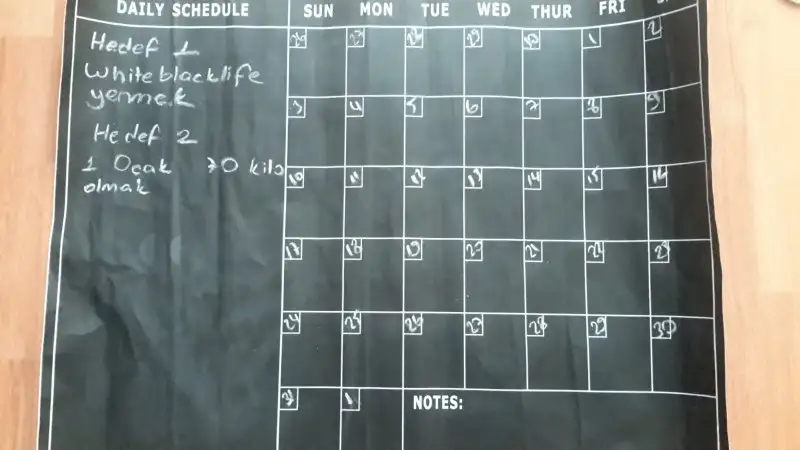 DAILY SCHEDULE SUN MON TUE WED THUR FRI
Hedef 1
Whiteblacklife
yenmek
Hedef 2
1 Ocak 70 kilo
olmak
1 2
3 4 5 6 7 8 9
10 11 12 13 14 15 16
17 18 19 20 21 22 23
24 25 26 27 28 29 30
31 1
NOTES: